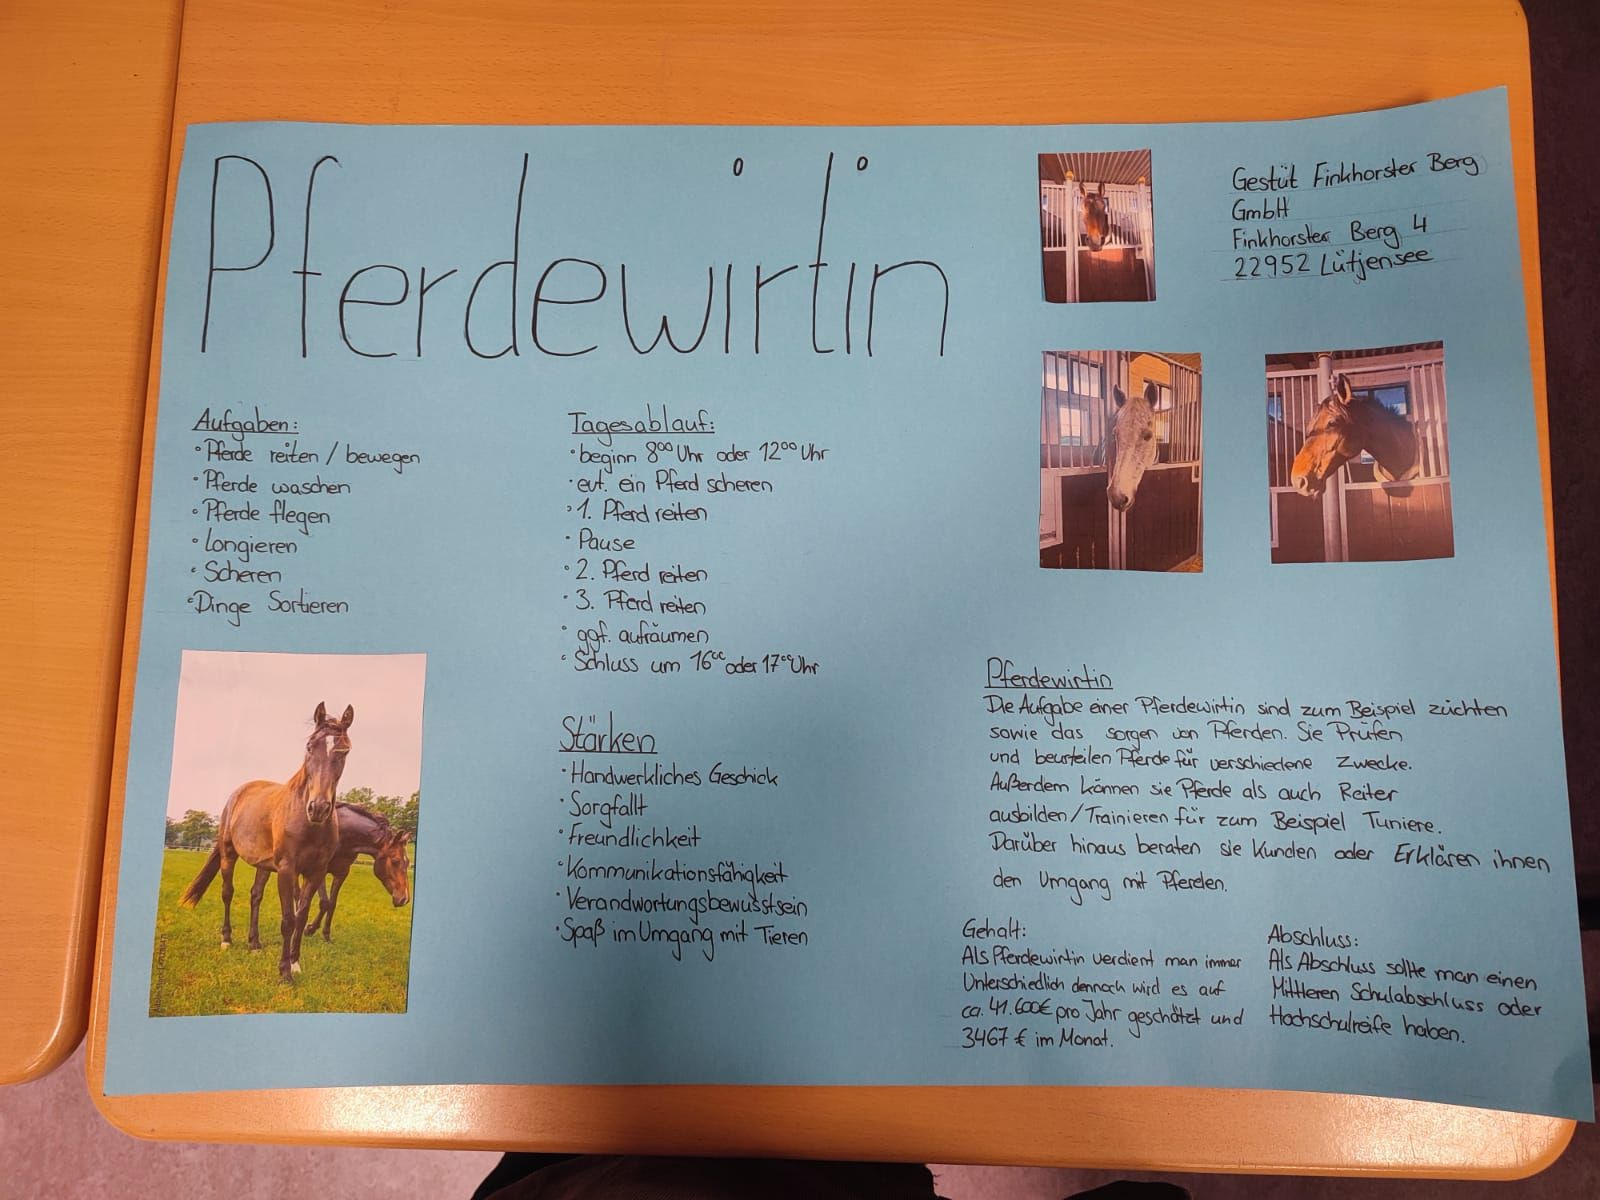 Pferdewirtin
Gestüt Finkhorster Berg
GmbH
Finkhorster Berg 4
22952 Lütjensee
Aufgaben:
• Pferde reiten / bewegen
• Pferde waschen
• Pferde flegen
• Longieren
• Scheren
• Dinge Sortieren
Tagesablauf:
• beginn 8⁰⁰ Uhr oder 12⁰⁰ Uhr
• evt. ein Pferd scheren
• 1. Pferd reiten
• Pause
• 2. Pferd reiten
• 3. Pferd reiten
• ggf. aufräumen
• Schluss um 16⁰⁰ oder 17⁰⁰ Uhr
Stärken
• Handwerkliches Geschick
• Sorgfallt
• Freundlichkeit
• Kommunikationsfähigkeit
• Verandwortungsbewusstsein
• Spaß im Umgang mit Tieren
Pferdewirtin
Die Aufgabe einer Pferdewirtin sind zum Beispiel züchten
sowie das sorgen von Pferden. Sie Prüfen
und beurteilen Pferde für verschiedene Zwecke.
Außerdem können sie Pferde als auch Reiter
ausbilden/Trainieren für zum Beispiel Tuniere.
Darüber hinaus beraten sie Kunden oder Erklären ihnen
den Umgang mit Pferden.
Gehalt:
Als Pferdewirtin verdient man immer
Unterschiedlich dennoch wird es auf
ca. 41.600€ pro Jahr geschätzt und
3467 € im Monat.
Abschluss:
Als Abschluss sollte man einen
Mittleren Schulabschluss oder
Hochschulreife haben.